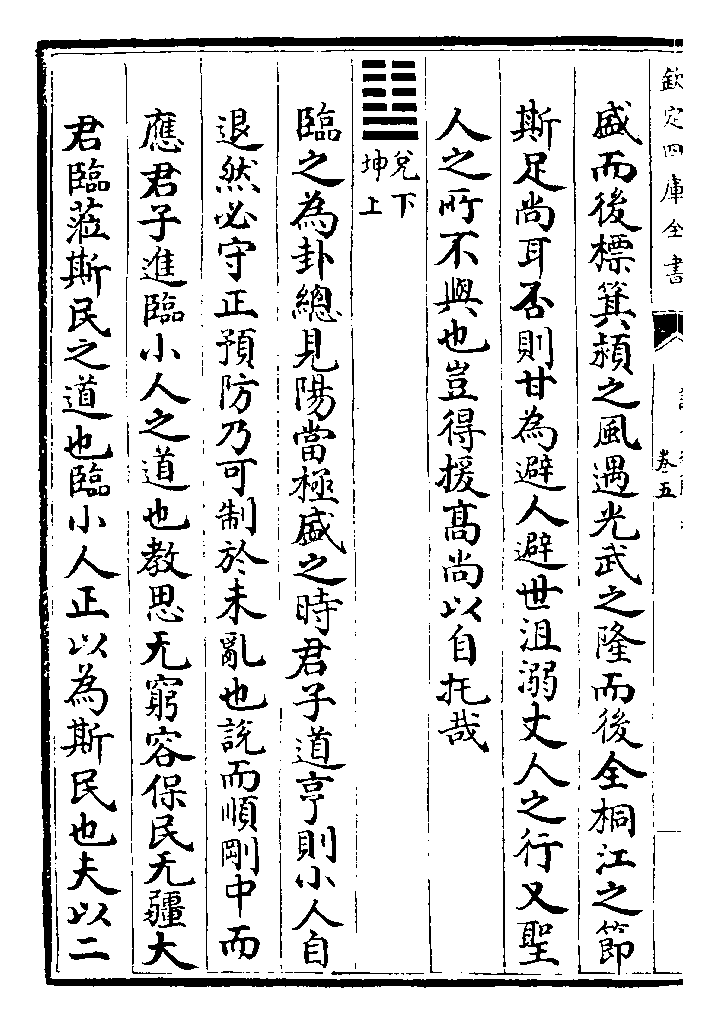 欽定四庫全書
卷五
盛而後標箕潁之風遇光武之隆而後全桐江之節
斯足尚耳否則甘為避人避世沮溺丈人之行又聖
人之所不與也豈得援高尚以自托哉
兌下
坤上
臨之為卦總見陽當極盛之時君子道亨則小人自
退然必守正預防乃可制於未亂也說而順剛中而
應君子進臨小人之道也教思无窮容保民无疆大
君臨蒞斯民之道也臨小人正以為斯民也夫以二